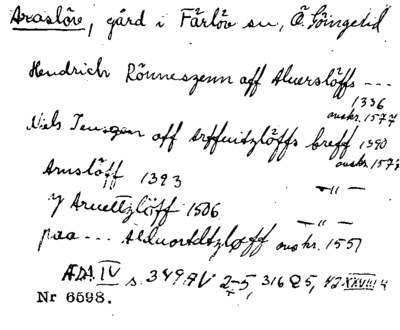 Araslöv, gård i Färlöv sn, Ö. Göingehd
Hendrich Rönneszenn aff Aluerslöffs ---
1336
avskr. 1577
Niels Jensøn aff Arffuitzlöffs breff 1390
avskr. 157
Arnslöff 1393 — " —
J Aruettzlöff 1506 — " —
paa --- avskr. 1551
ÆDA IV s. 349 AV 2-5, 316 Q 5, 42 XXVIII 4
Nr 6598.